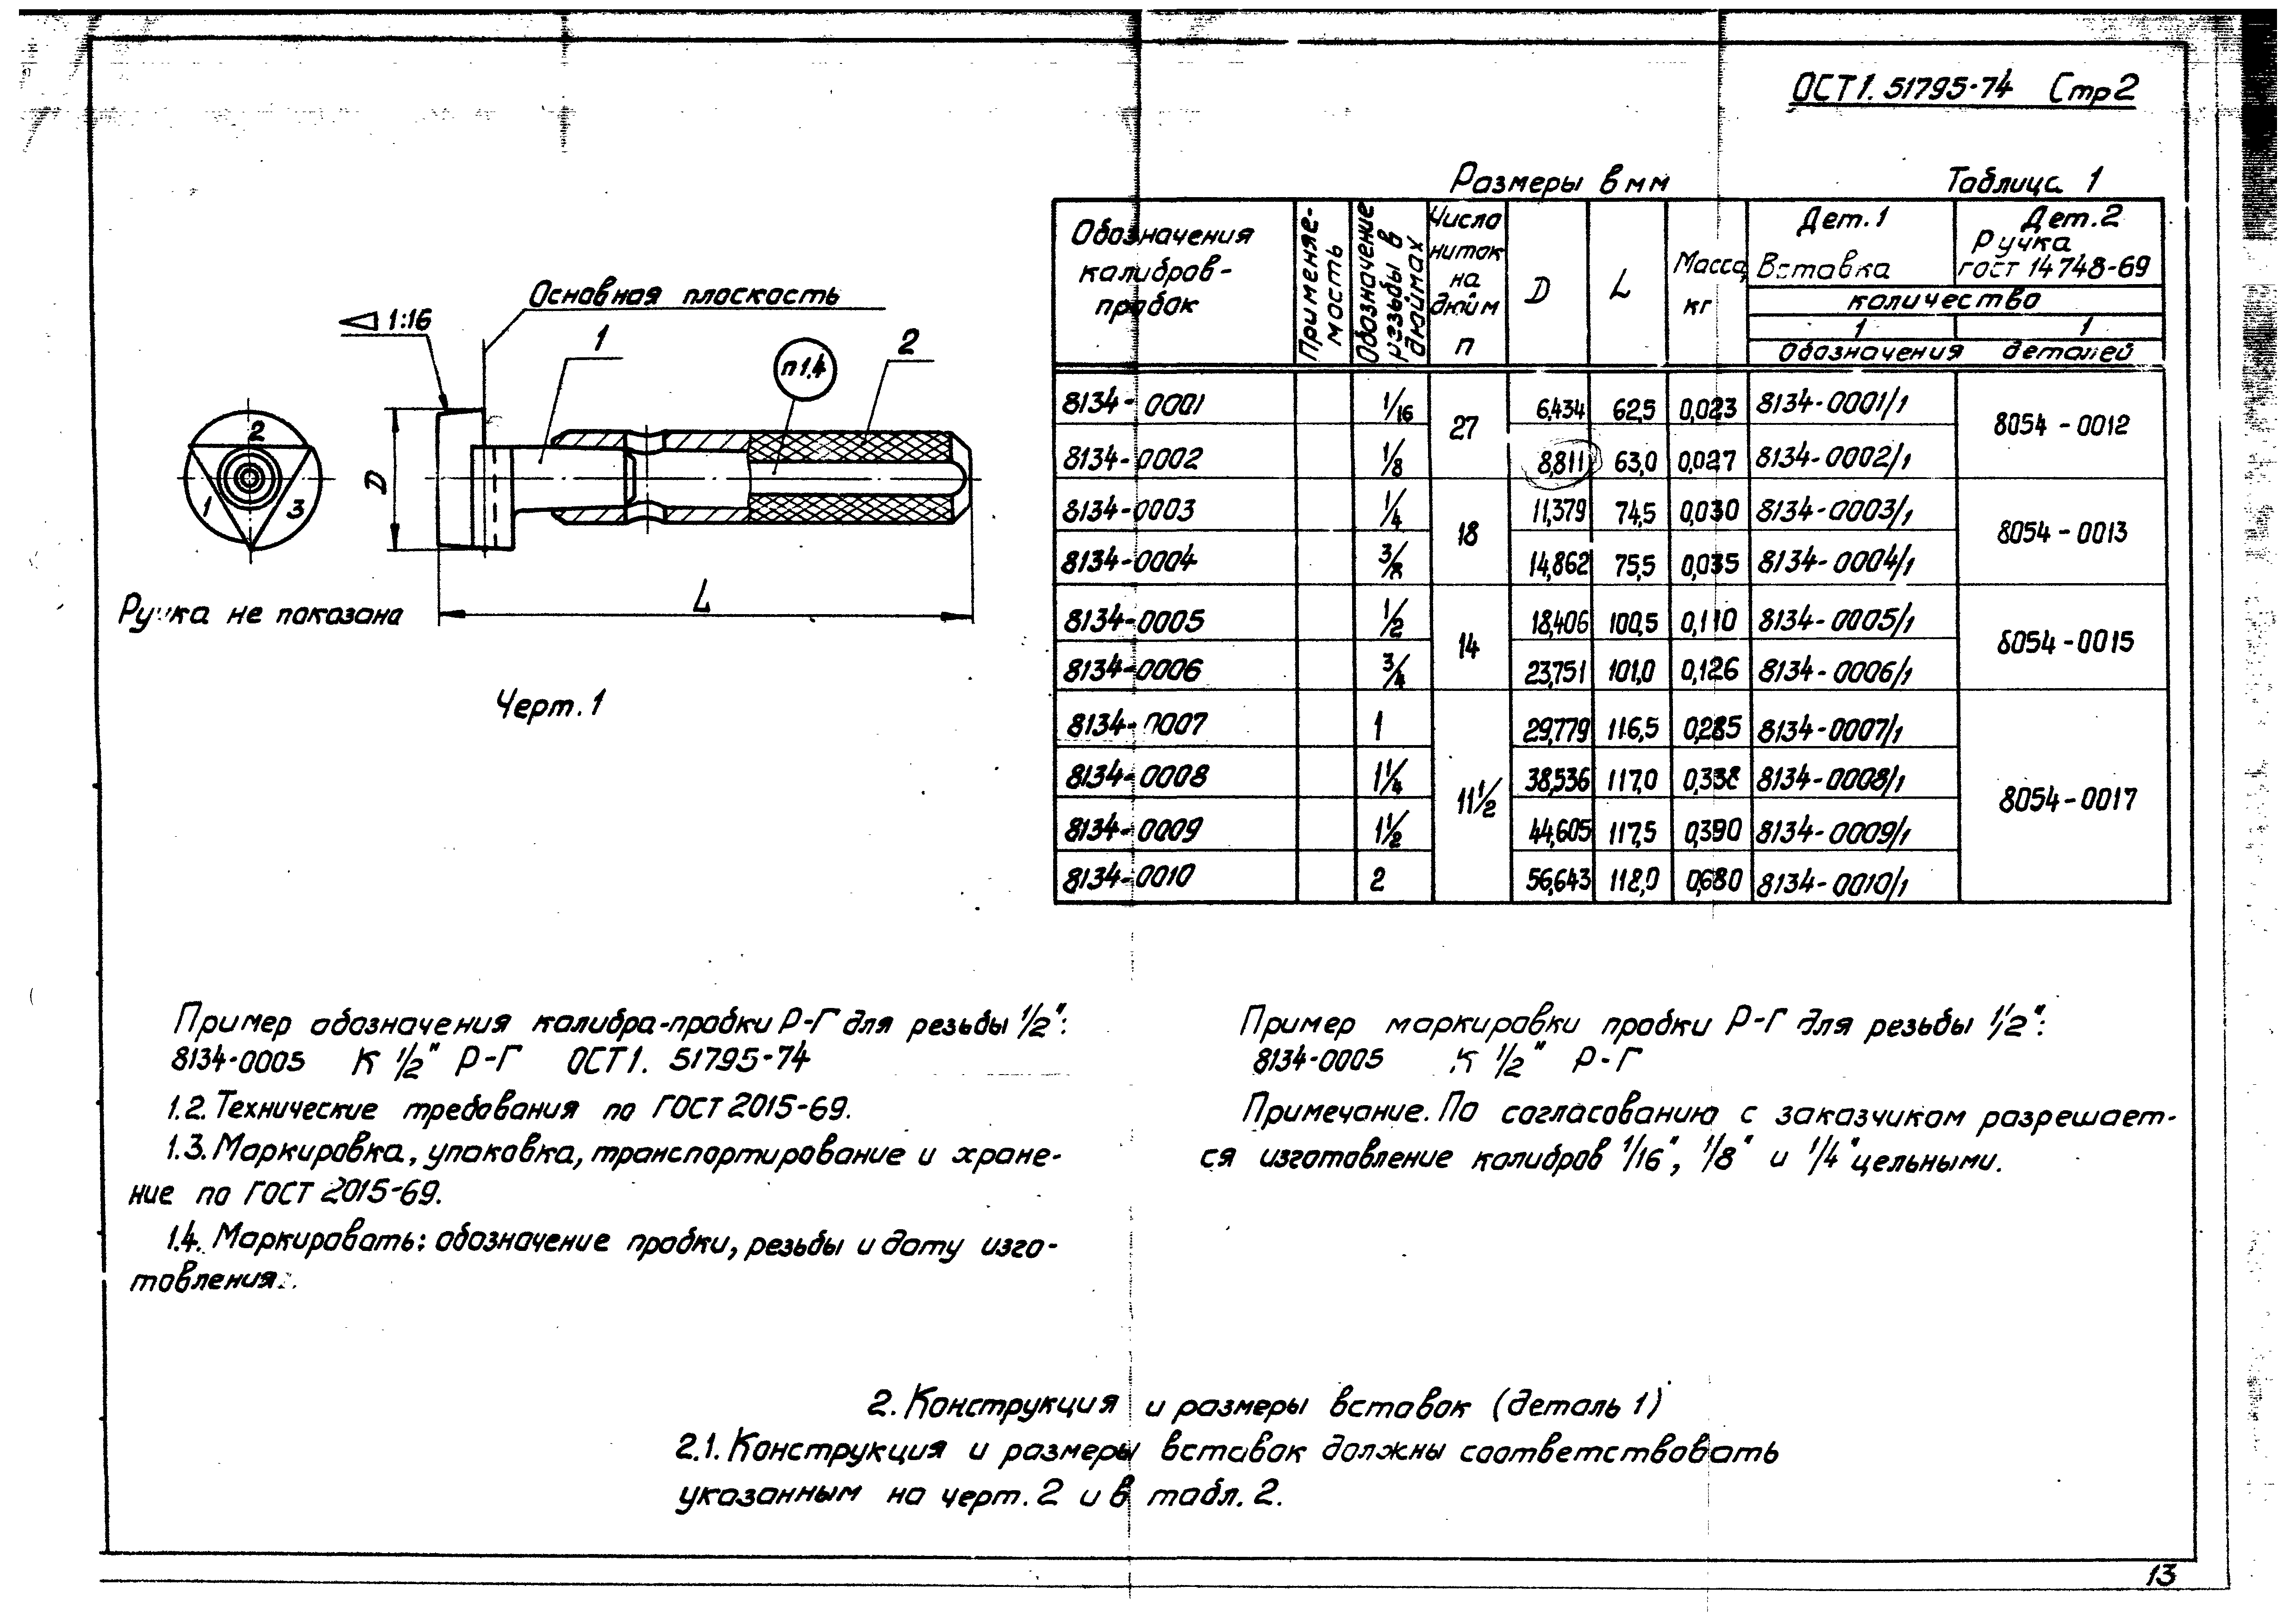 ОСТ1. 51795-74 Стр2
Основная плоскость
1:16
1
2
п1.4
2
1
3
D
L
Ручка не показана
Черт. 1
Размеры в мм
Таблица 1
Обозначения калибров-пробок
Применяемость
Обозначение резьбы в дюймах
Число ниток на дюйм п
D
L
Масса, кг
Дет. 1 Вставка
Дет. 2 Ручка гост 14748-69
количество
1 1
Обозначения деталей
8134-0001 1/16 27 6,434 62,5 0,023 8134-0001/1 8054-0012
8134-0002 1/8 8,811 63,0 0,027 8134-0002/1
8134-0003 1/4 18 11,379 74,5 0,030 8134-0003/1 8054-0013
8134-0004 3/8 14,862 75,5 0,035 8134-0004/1
8134-0005 1/2 14 18,406 100,5 0,110 8134-0005/1 8054-0015
8134-0006 3/4 23,751 101,0 0,126 8134-0006/1
8134-0007 1 11 1/2 29,779 116,5 0,285 8134-0007/1 8054-0017
8134-0008 1 1/4 38,536 117,0 0,338 8134-0008/1
8134-0009 1 1/2 44,605 117,5 0,390 8134-0009/1
8134-0010 2 56,643 118,0 0,680 8134-0010/1
Пример обозначения калибра-пробки Р-Г для резьбы 1/2":
8134-0005 К 1/2" Р-Г ОСТ1. 51795-74
1.2. Технические требования по ГОСТ 2015-69.
1.3. Маркировка, упаковка, транспортирование и хране-
ние по ГОСТ 2015-69.
1.4. Маркировать: обозначение пробки, резьбы и дату изго-
товления.
Пример маркировки пробки Р-Г для резьбы 1/2":
8134-0005 К 1/2" Р-Г
Примечание. По согласованию с заказчиком разрешает-
ся изготовление калибров 1/16", 1/8" и 1/4" цельными.
2. Конструкция и размеры вставок (деталь 1)
2.1. Конструкция и размеры вставок должны соответствовать
указанным на черт. 2 и в табл. 2.
13